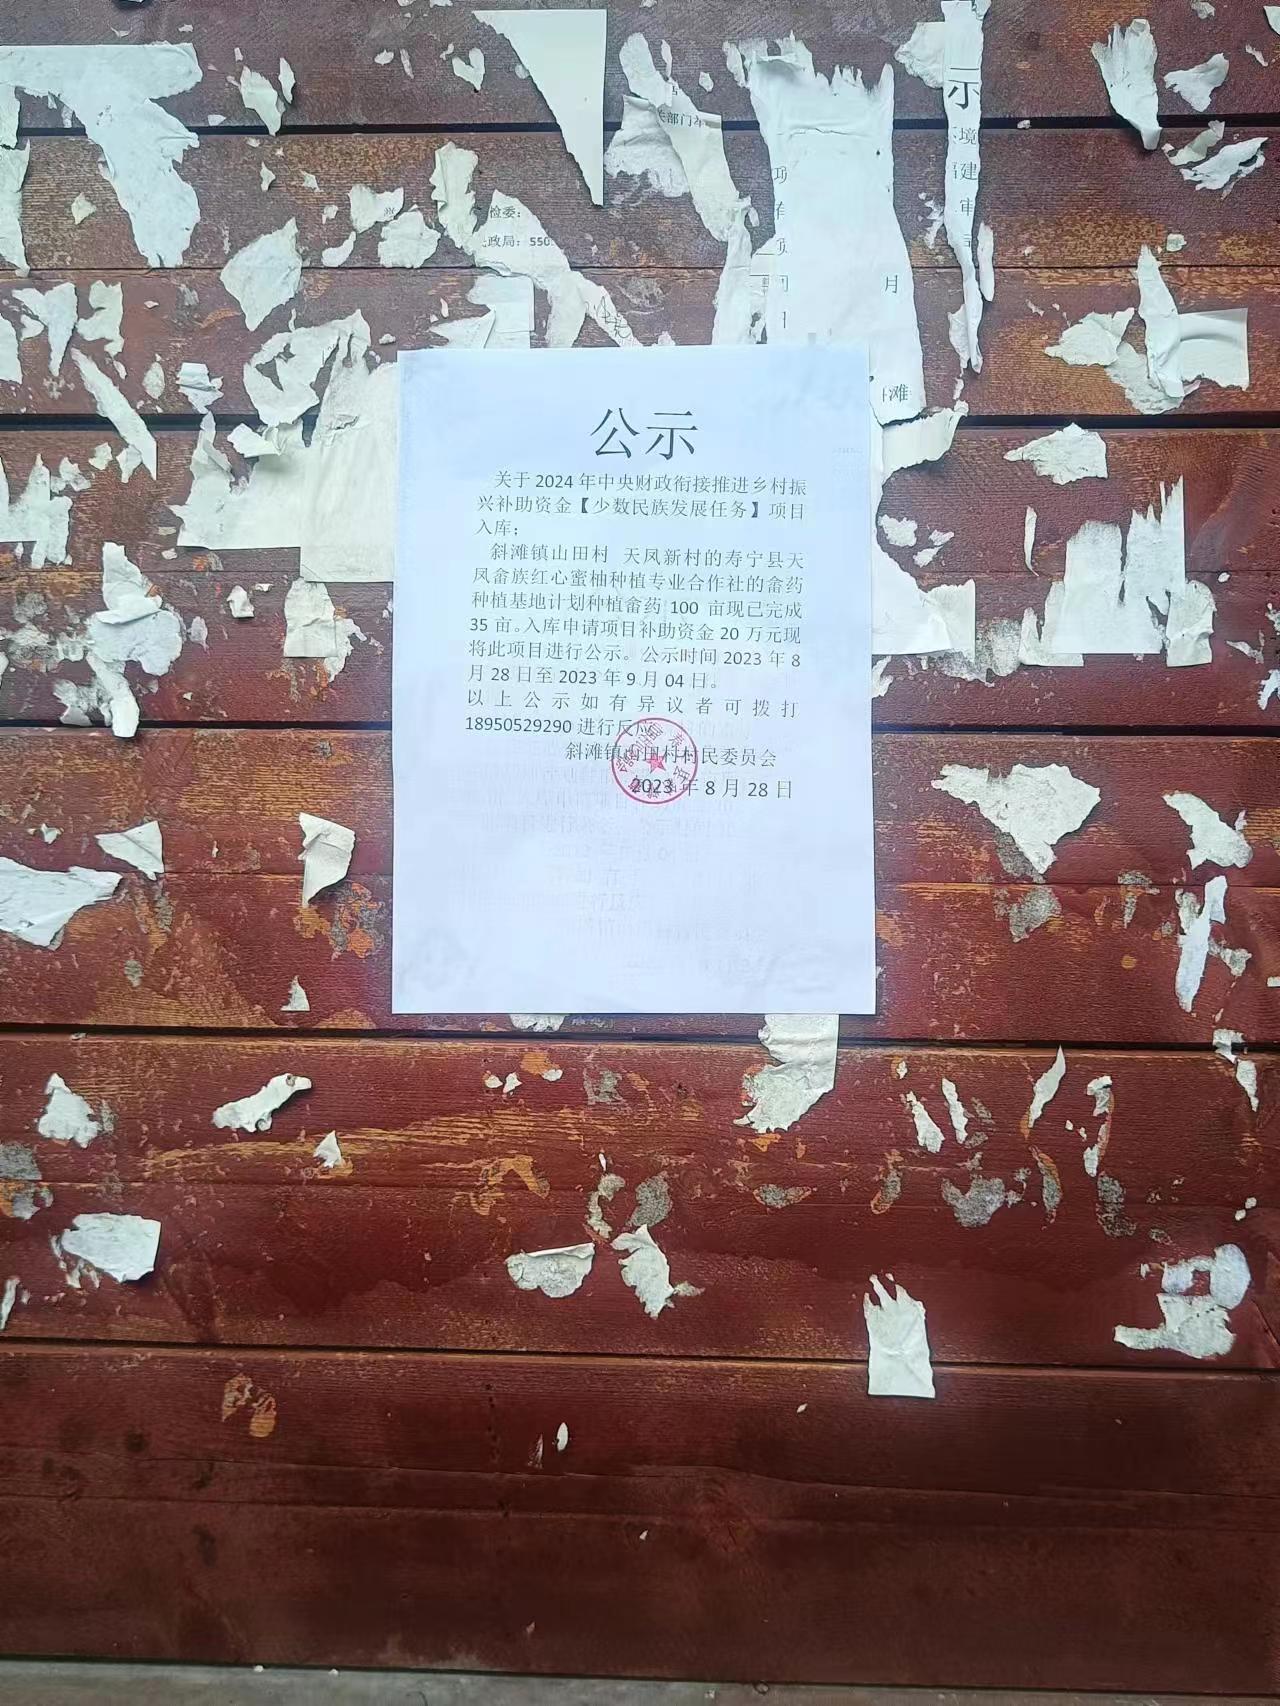 示
关部门年
境
建
审
项
检委:
政局: 550
月
滩
公示
关于2024年中央财政衔接推进乡村振
兴补助资金【少数民族发展任务】项目
入库;
斜滩镇山田村 天凤新村的寿宁县天
凤畲族红心蜜柚种植专业合作社的畲药
种植基地计划种植畲药100 亩现已完成
35亩。入库申请项目补助资金20万元现
将此项目进行公示。公示时间2023年8
月28日至2023年9月04日。
以上公示如有异议者可拨打
18950529290进行反应
斜滩镇山田村村民委员会
2023年8月28日